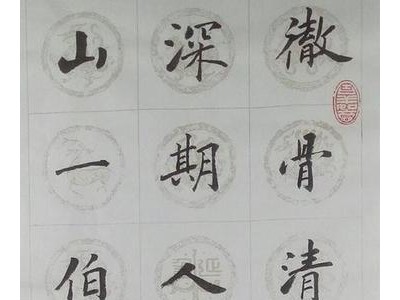 徹骨清
深期人
山一伯